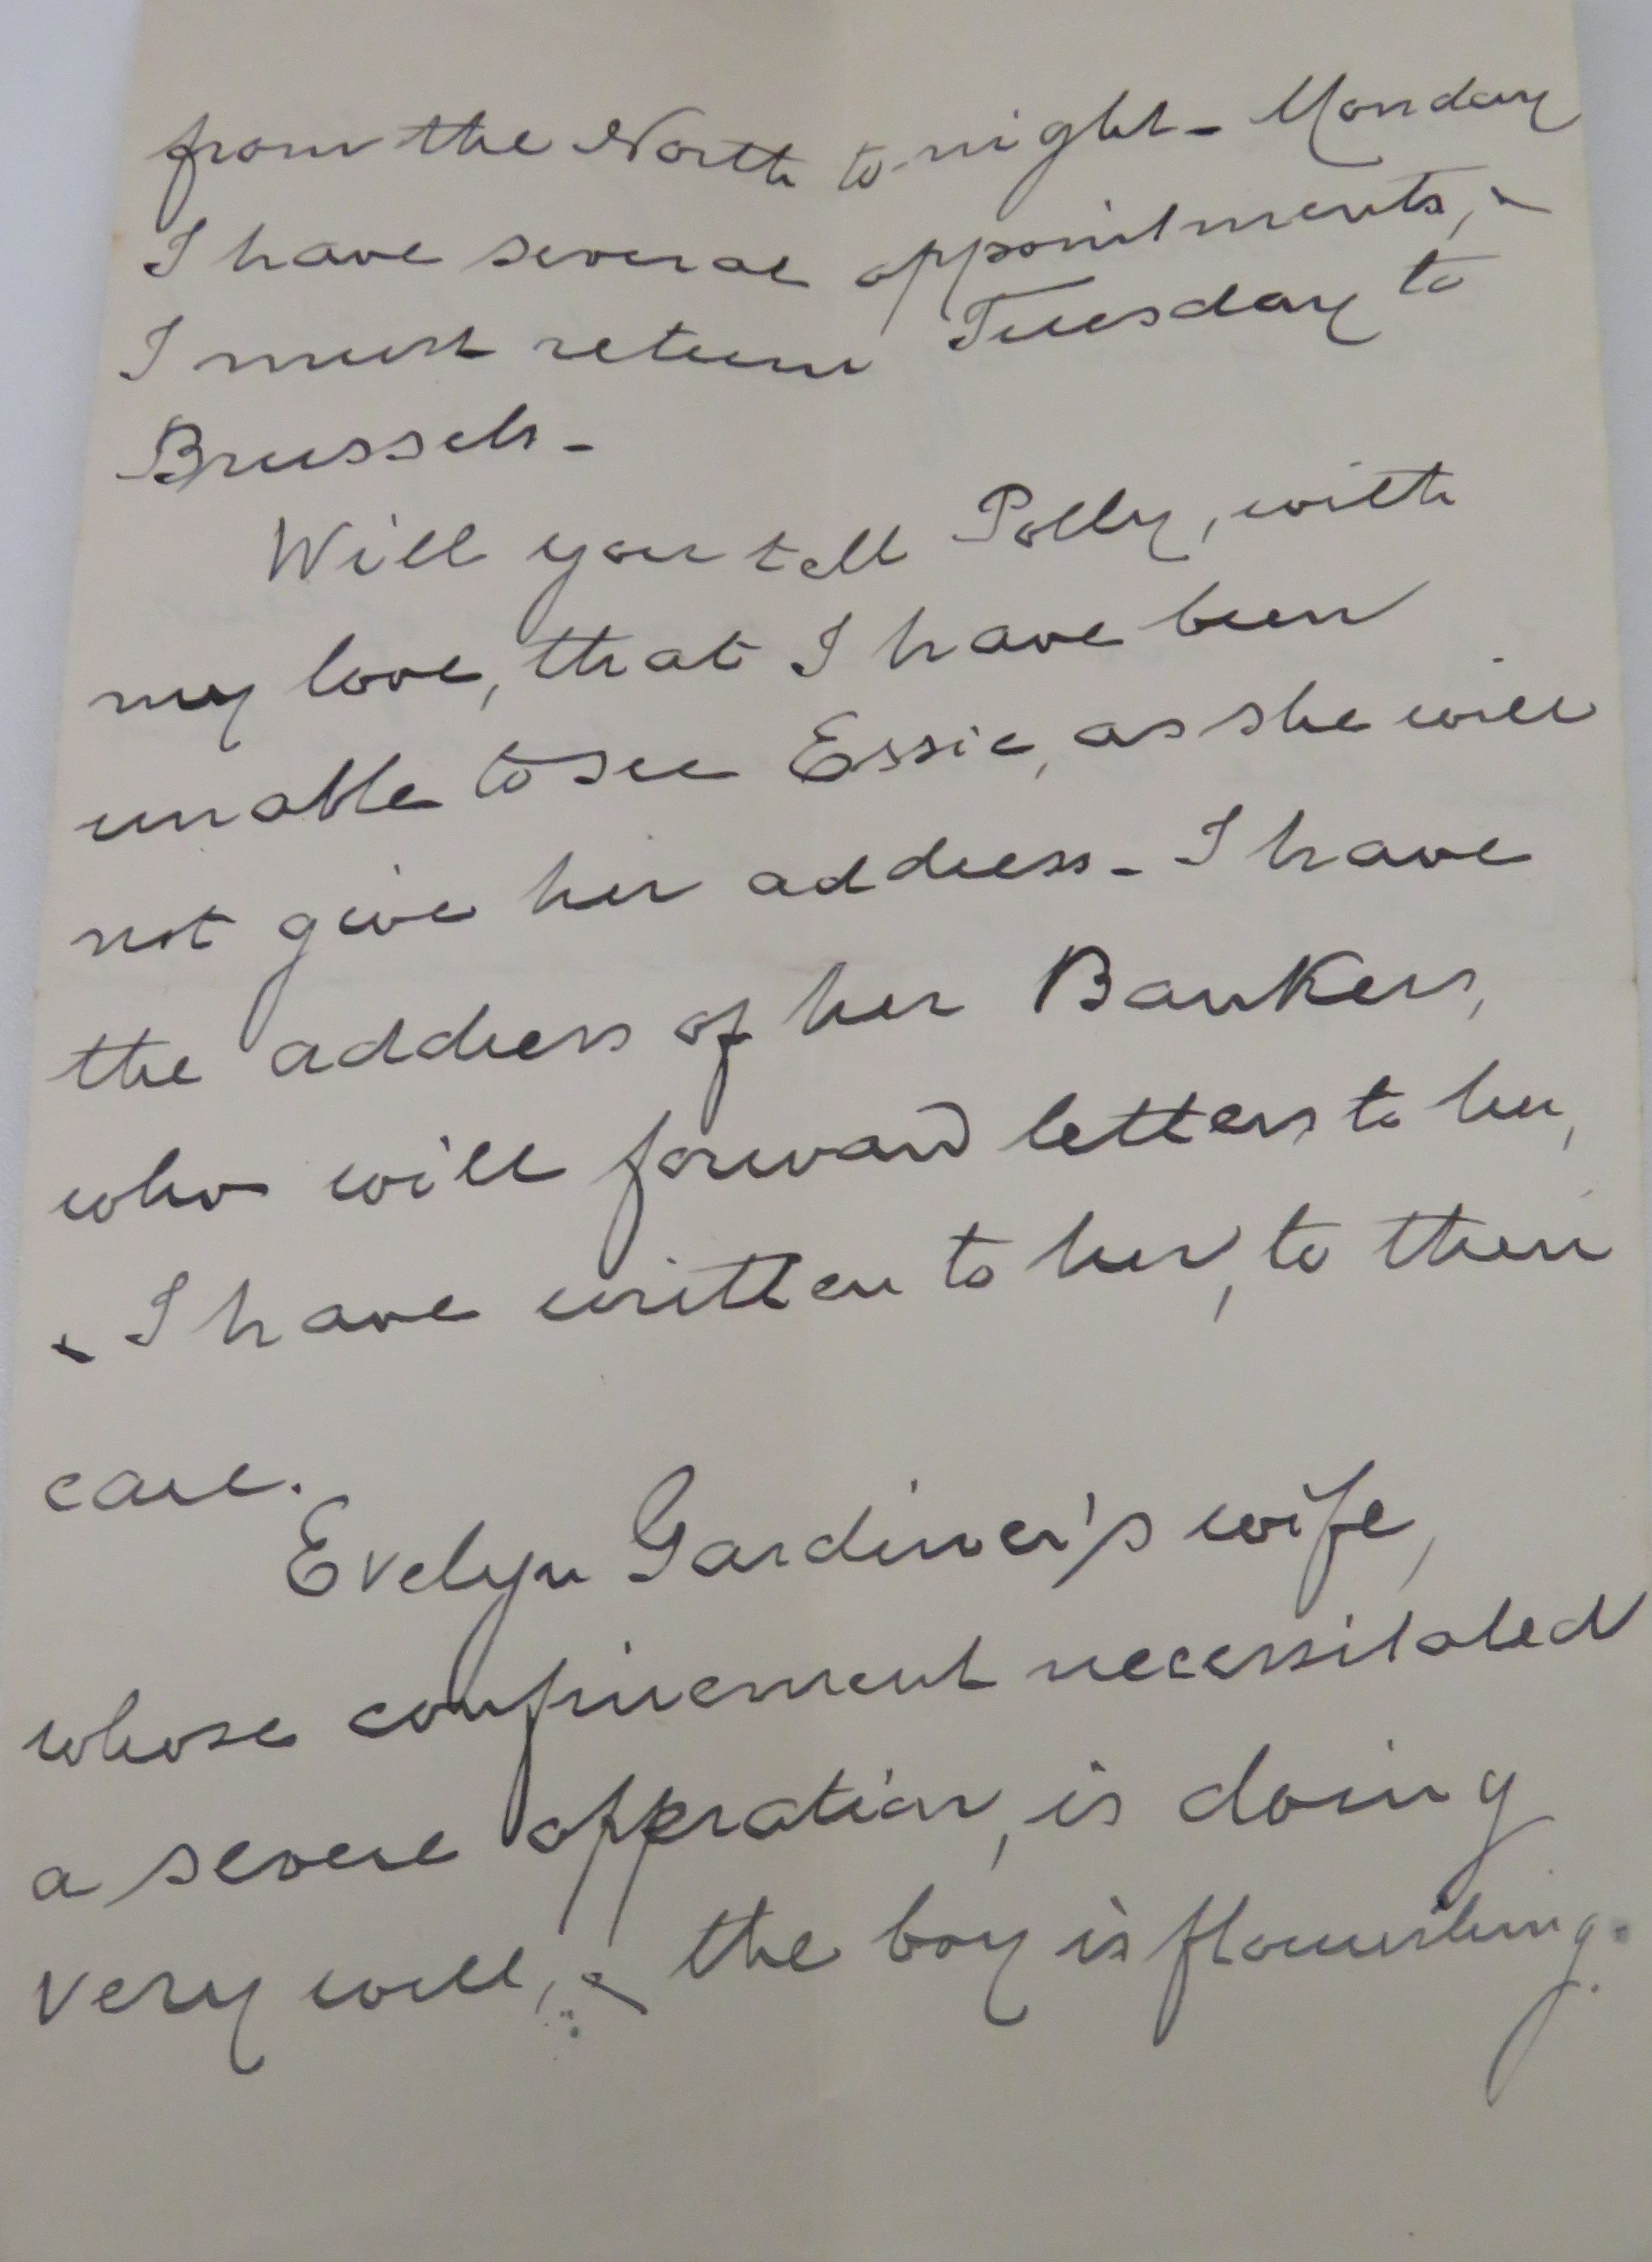 from the North to-night - Monday
I have several appointments, &
I must return Tuesday to
Brussels -
Will you tell Polly, with
my love, that I have been
unable to see Essie, as she will
not give her address - I have
the address of her Bankers,
who will forward letters to her,
& I have written to her, to their
care.
Evelyn Gardiner's wife,
whose confinement necessitated
a severe opperation, is doing
very well, & the boy is flourishing.